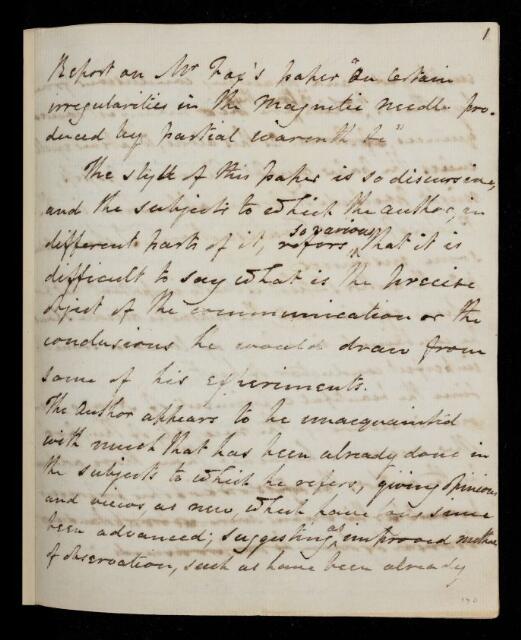 1
Report on Mr Fox's paper "On certain
irregularities in the magnetic needle pro-
duced by partial warmth &c"
The style of this paper is so discursive,
and the subjects to which the author, in
different parts of it, refers so various, that it is
difficult to say what is the precise
object of the communication or the
conclusions he would draw from
some of his experiments.
The author appears to be unacquainted
with much that has been already done in
the subjects to which he refers, giving opinions
and views as new which have long since
been advanced; suggesting as improved methods
of observation, such as have been already